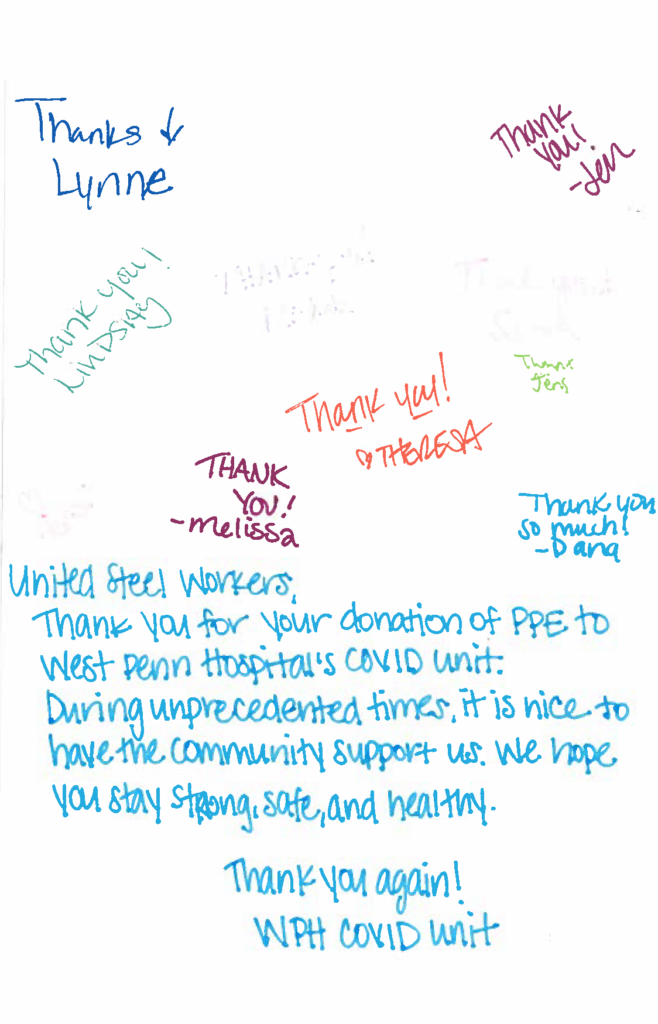 Thanks
Lynne
Thank
you!
-Jen
Thank you!
Lindsay
Thank you!
♡ THERESA
Thanks
Jens
THANK
YOU!
-Melissa
Thank you
so much!
-Dana
United Steel Workers,
Thank you for your donation of PPE to
West Penn Hospital's COVID unit.
During unprecedented times, it is nice to
have the community support us. We hope
you stay strong, safe, and healthy.
Thank you again!
WPH COVID unit